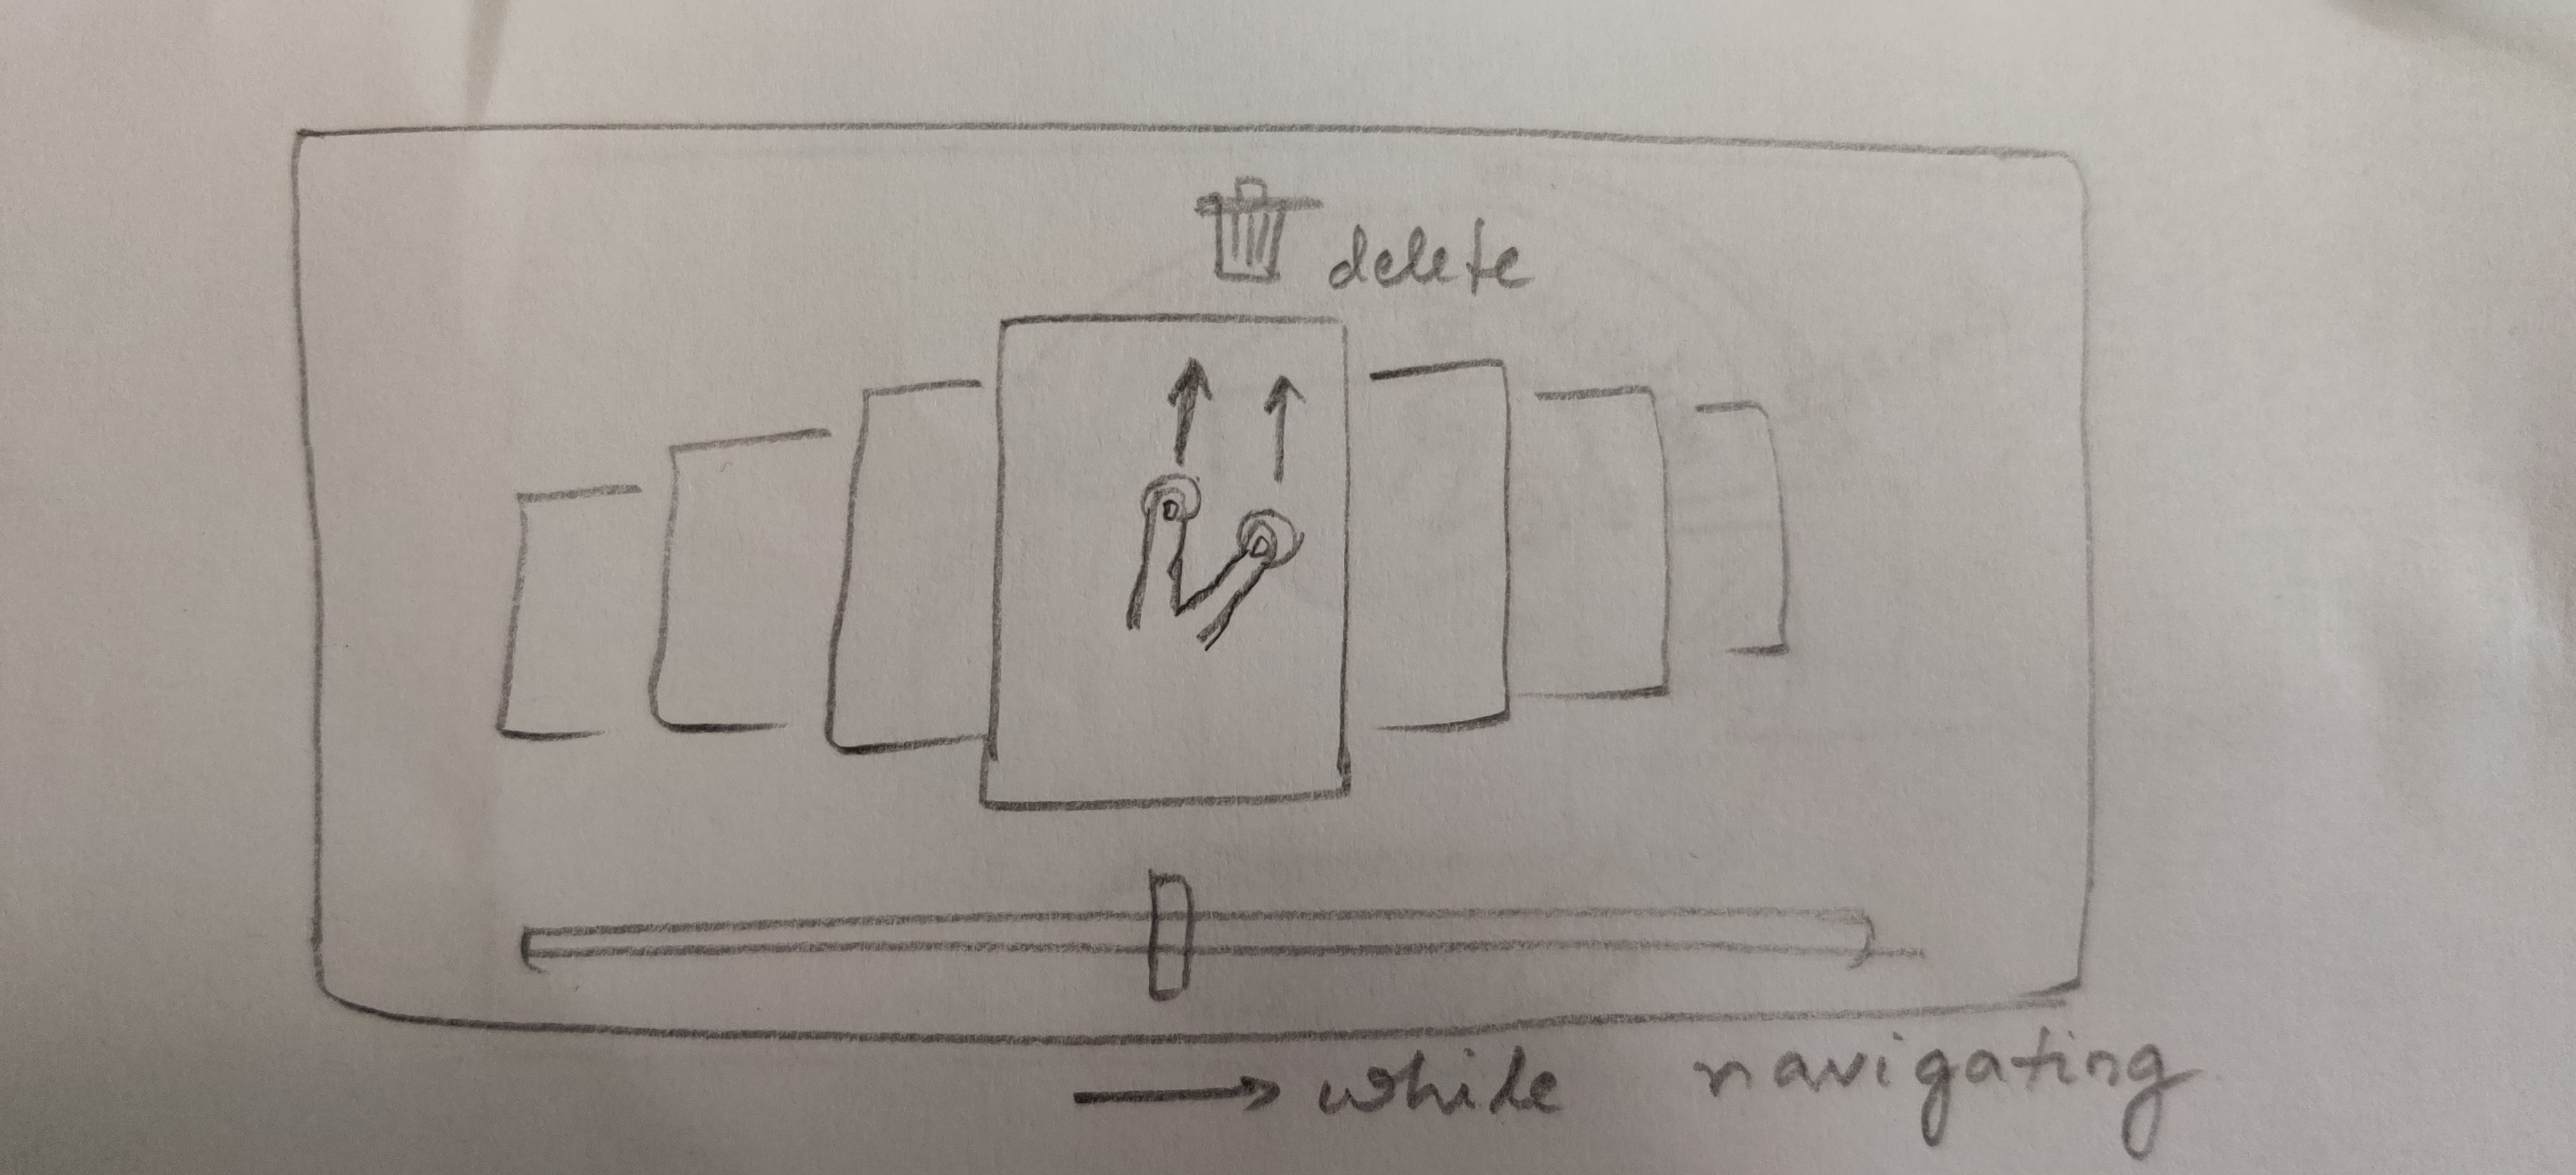 delete
→ while navigating